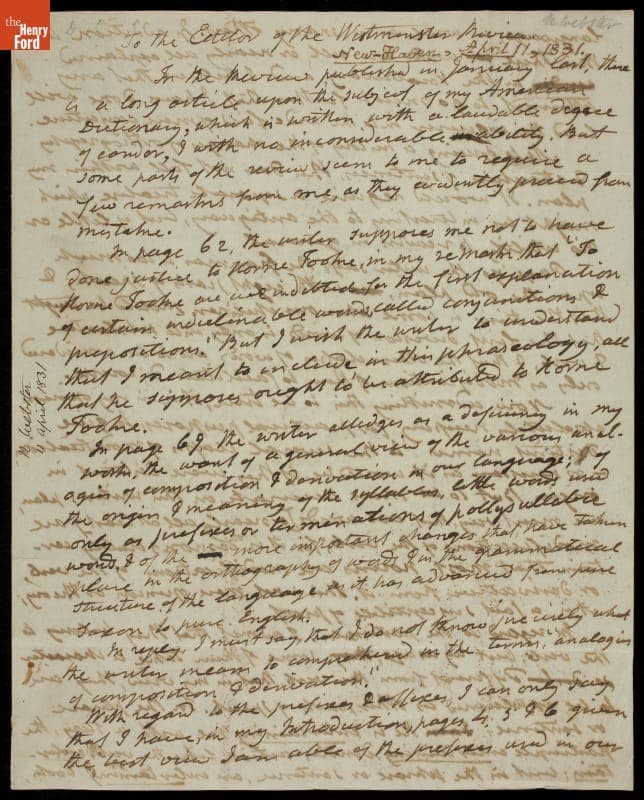 the
Henry
Ford
N Webster
To the Editor of the Westminster Review.
New-Haven, April 11, 1831.
In the Review published in January last, there
is a long article upon the subject of my American
Dictionary, which is written with a laudable degree
of candor, & with no inconsiderable ability. But
some parts of the review seem to me to require a
few remarks from me, as they evidently proceed from
mistake.
In page 62, the writer supposes me not to have
done justice to Horne Tooke, in my remark that "To
Horne Tooke are we indebted for the first explanation
of certain indeclinable words called conjunctions &
prepositions." But I wish the writer to understand
that I meant to include in this phraseology, all
that he supposes ought to be attributed to Horne
Tooke.
In page 69, the writer alledges as a deficiency in my
work, the want of a general view of the various anal-
ogies of composition & derivation in our language; & of
the origin & meaning of the syllables, little words used
only as prefixes or terminations of pollysyllabic
words & of the more important changes that have taken
place in the orthography of words & in the grammatical
structure of the language, as it has advanced from pure
Saxon to pure English.
In reply, I must say that I do not know precisely what
the writer means to comprehend in the terms, "analogies
of composition & derivation."
With regard to the prefixes & affixes, I can only say
that I have, in my Introduction, pages 4, 5 & 6 given
the best view I am able of the prefixes used in our
N Webster
11 April 1831